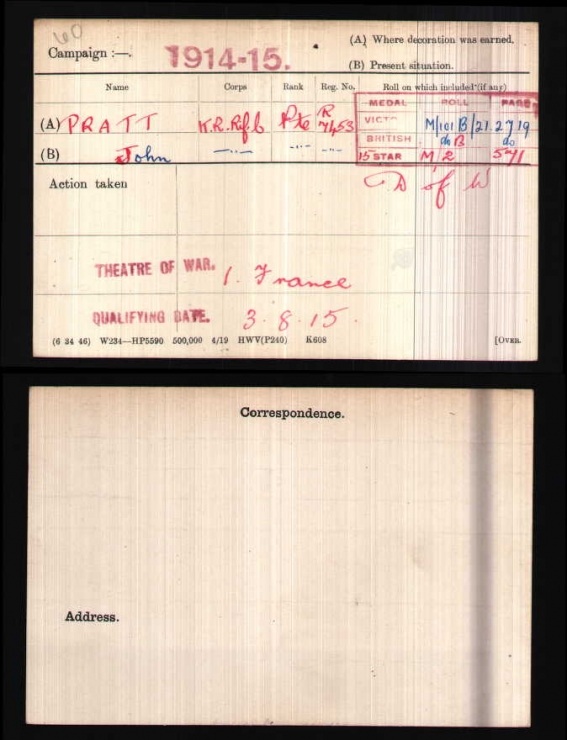 60
Campaign :—. 1914-15.
(A) Where decoration was earned.
(B) Present situation.
Name Corps Rank Reg. No. Roll on which included (if any)
MEDAL ROLL PAGE
(A) PRATT K.R.Rif.C Pte R 7453
VICTY M/101 B/21 2719
BRITISH do B do
(B) John —"— —"— —"—
15 STAR M/2 571
Action taken
D of W
THEATRE OF WAR. 1. France
QUALIFYING DATE. 3.8.15.
(6 34 46) W234—HP5590 500,000 4/19 HWV(P240) K608 [OVER.
Correspondence.
Address.